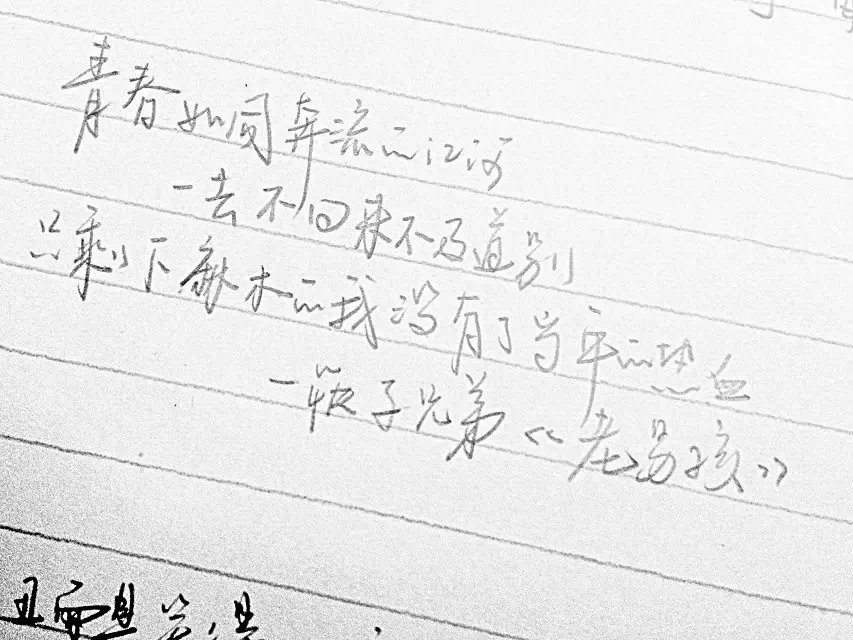 青春如同奔流的江河
一去不回来不及道别
只剩下麻木的我没有了当年的热血
一筷子兄弟《老男孩》